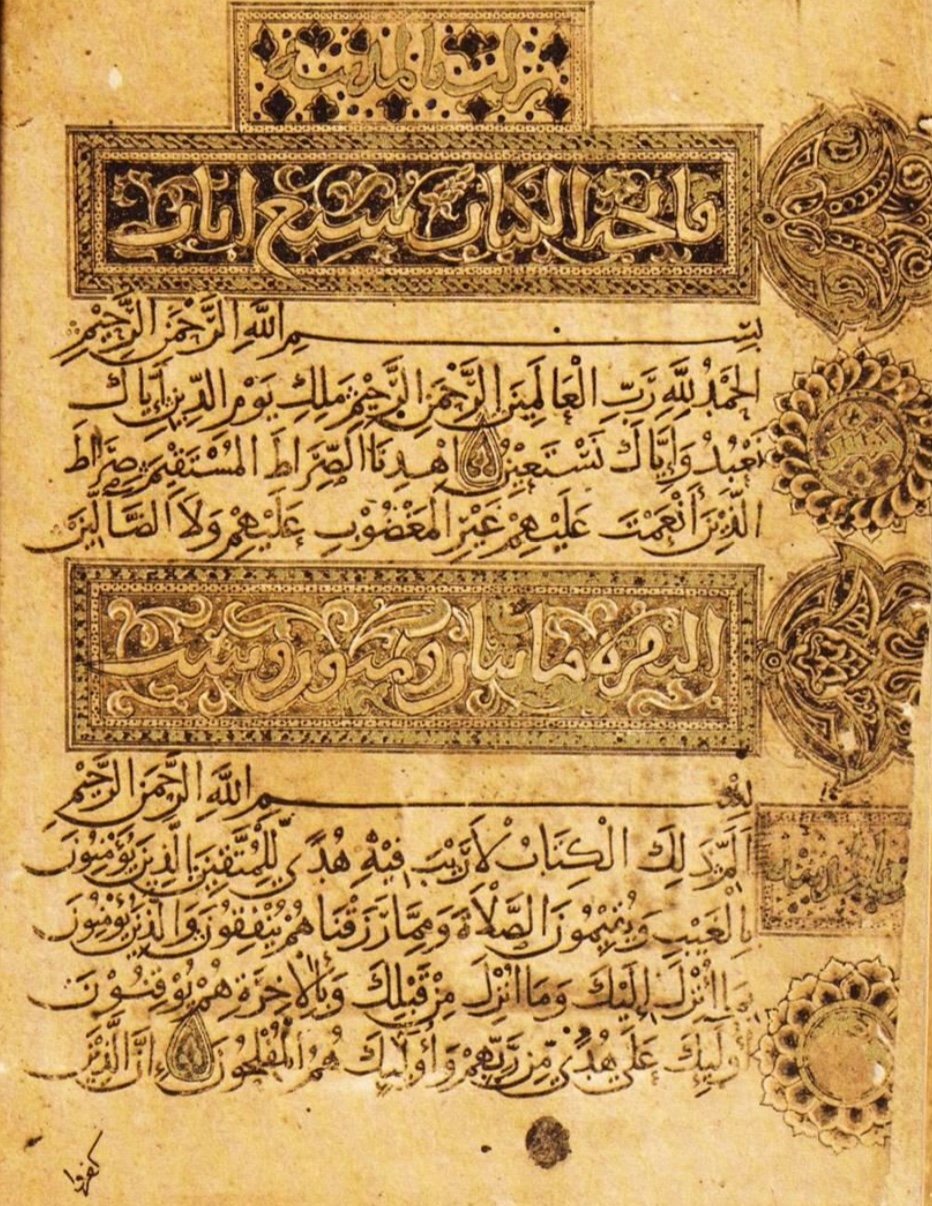 نزلت بالمدينة
فاتحة الكتاب سبع ايات
بِسْمِ اللّٰهِ الرَّحْمٰنِ الرَّحِيْمِ
الْحَمْدُ لِلّٰهِ رَبِّ الْعَالَمِيْنَ الرَّحْمٰنِ الرَّحِيْمِ مَلِكِ يَوْمِ الدِّيْنِ إِيَّاكَ
نَعْبُدُ وَإِيَّاكَ نَسْتَعِيْنُ اهْدِنَا الصِّرَاطَ الْمُسْتَقِيْمَ صِرَاطَ
الَّذِيْنَ أَنْعَمْتَ عَلَيْهِمْ غَيْرِ الْمَغْضُوْبِ عَلَيْهِمْ وَلَا الضَّالِّيْنَ
البقرة مايتان وثمنون وست
بِسْمِ اللّٰهِ الرَّحْمٰنِ الرَّحِيْمِ
الٓمٓ ذَلِكَ الْكِتَابُ لَا رَيْبَ فِيْهِ هُدًى لِّلْمُتَّقِيْنَ الَّذِيْنَ يُؤْمِنُوْنَ
بِالْغَيْبِ وَيُقِيْمُوْنَ الصَّلَاةَ وَمِمَّا رَزَقْنَاهُمْ يُنْفِقُوْنَ وَالَّذِيْنَ يُؤْمِنُوْنَ
بِمَا أُنْزِلَ إِلَيْكَ وَمَا أُنْزِلَ مِنْ قَبْلِكَ وَبِالْآخِرَةِ هُمْ يُوْقِنُوْنَ
أُولٰئِكَ عَلَى هُدًى مِّنْ رَّبِّهِمْ وَأُولٰئِكَ هُمُ الْمُفْلِحُوْنَ إِنَّ الَّذِيْنَ
كفروا